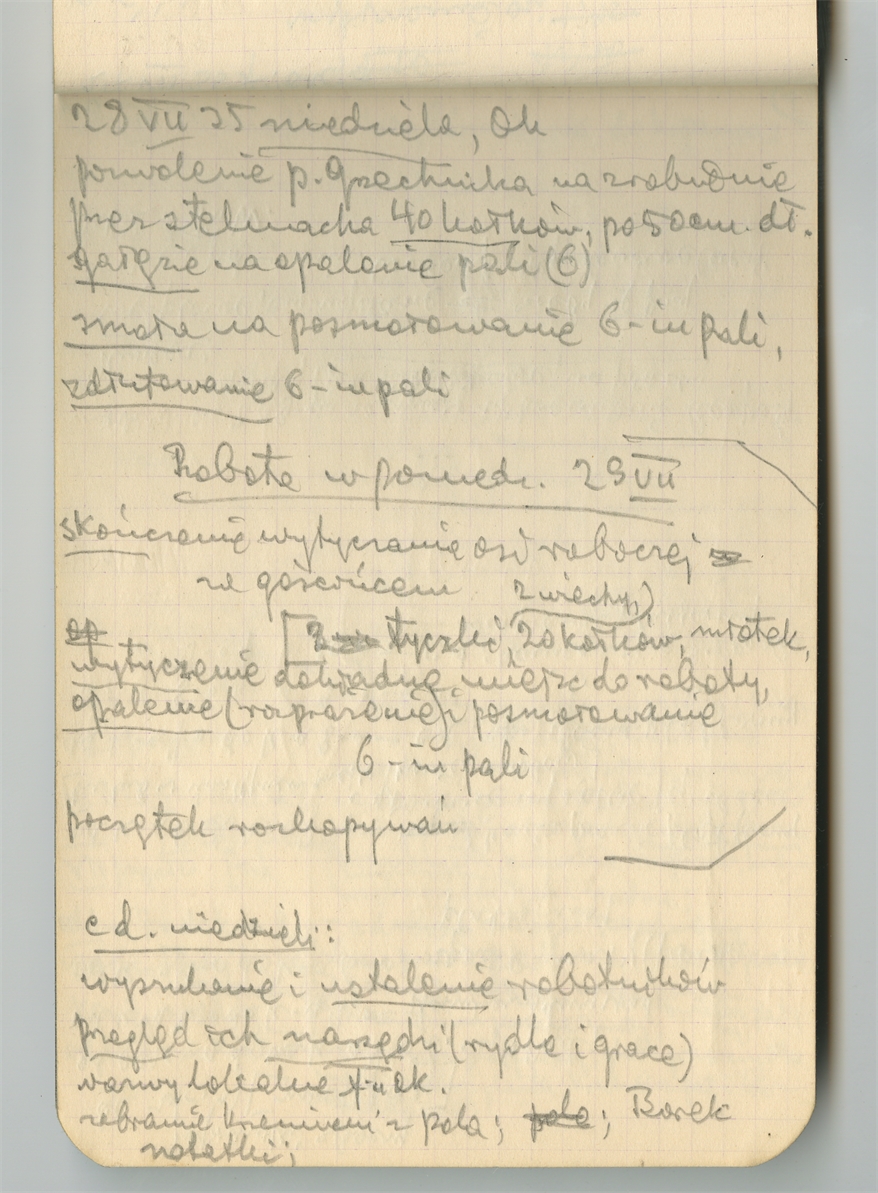 28 VII 35 niedziela, Ok
pozwolenie p. Grzechnika na zrobienie
przez stelmacha 40 kołków, po 50 cm. dł.
gałęzie na opalenie pali (6)
smoła na posmorowanie 6-iu pali,
zdłutowanie 6-iu pali
Robota w poniedz. 29 VII
skończenie wytyczanie osi roboczej
za gościńcem 2 wiechy,)
tyczki, 20 kołków, młotek,
wytyczenie dokładne miejsc do roboty,
opalenie (rozprażenie) i posmorowanie
6-iu pali
początek rozkopywań
c d. niedzieli:
wyszukanie i ustalenie robotników
przegląd ich narzędzi (rydle i grace)
nazwy lokalne ok.
zebranie krzemieni z pola; pola; Borek
notatki;